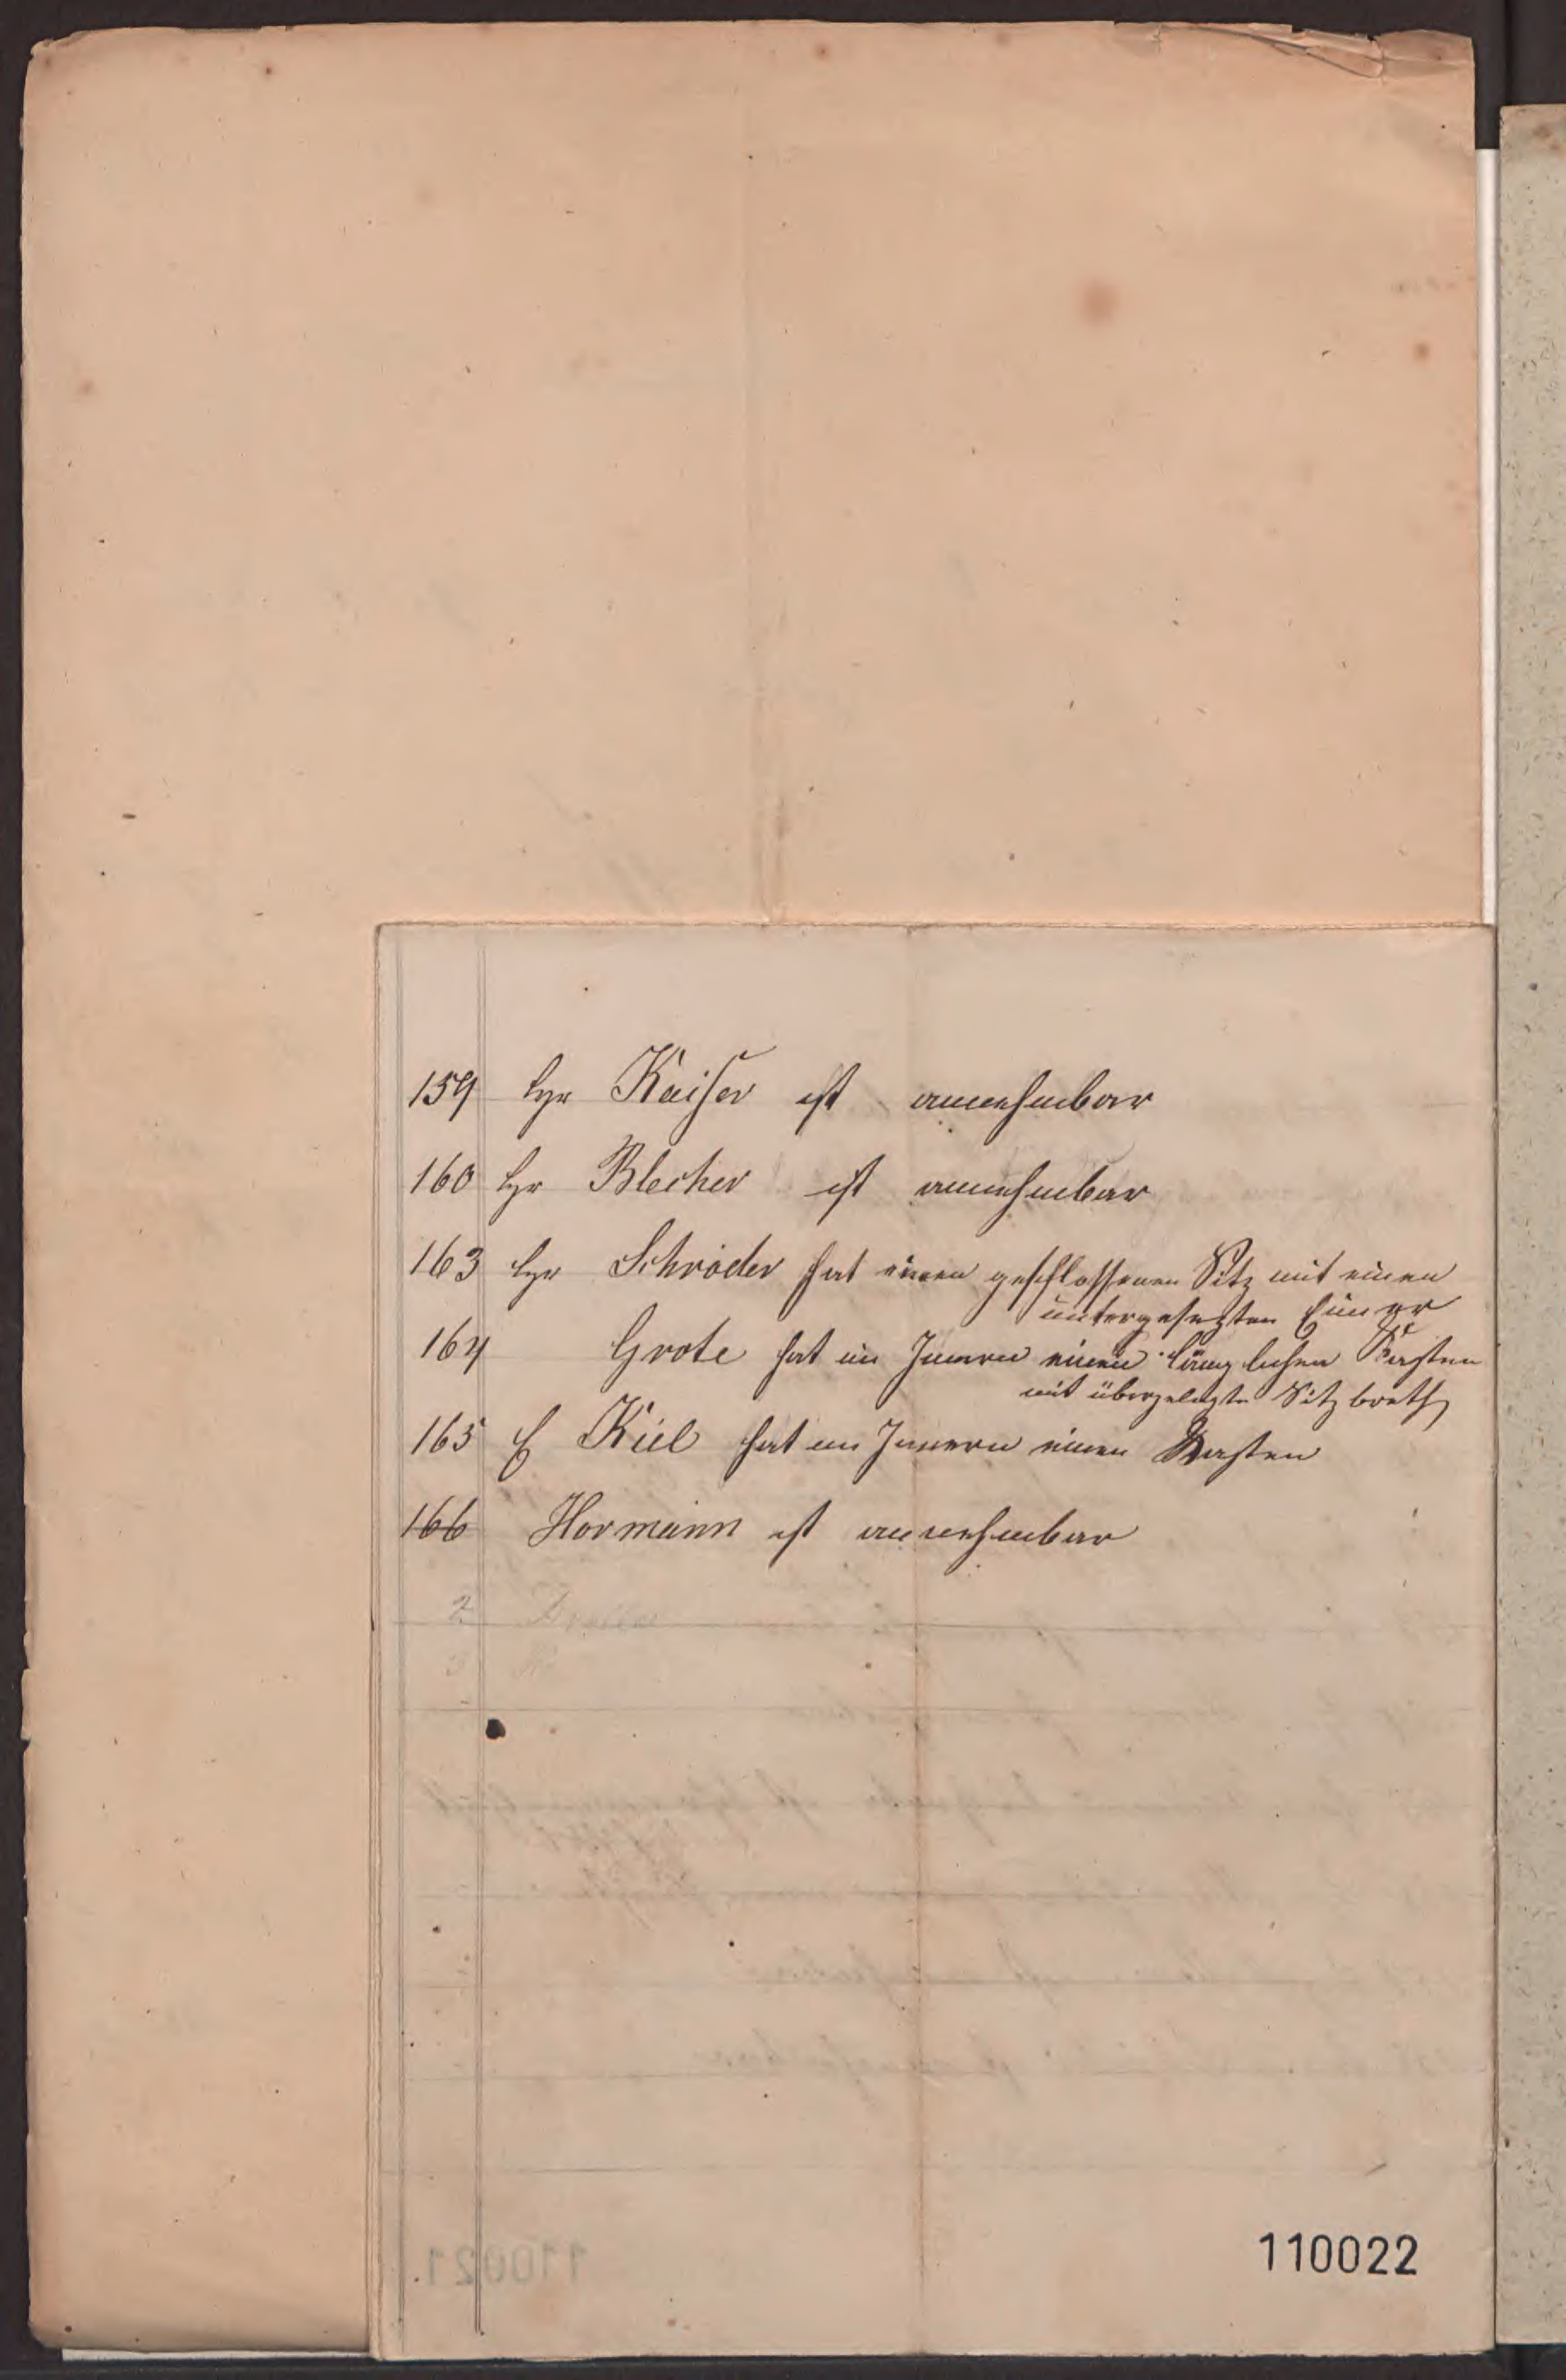 159 Hr Kaiser ist annehmbar
160 Hr Blecher ist annehmbar
163 Hr Schröder hat einen geschlossenen Sitz mit einen
untergesezten Eimer
164 Grote hat im Innern einen länglichen Kasten
mit übergelegten Sitzbreth
165 Kiel hat im Innern einen Kasten
166 Hormann ist annehmbar
2
3
110022
110021